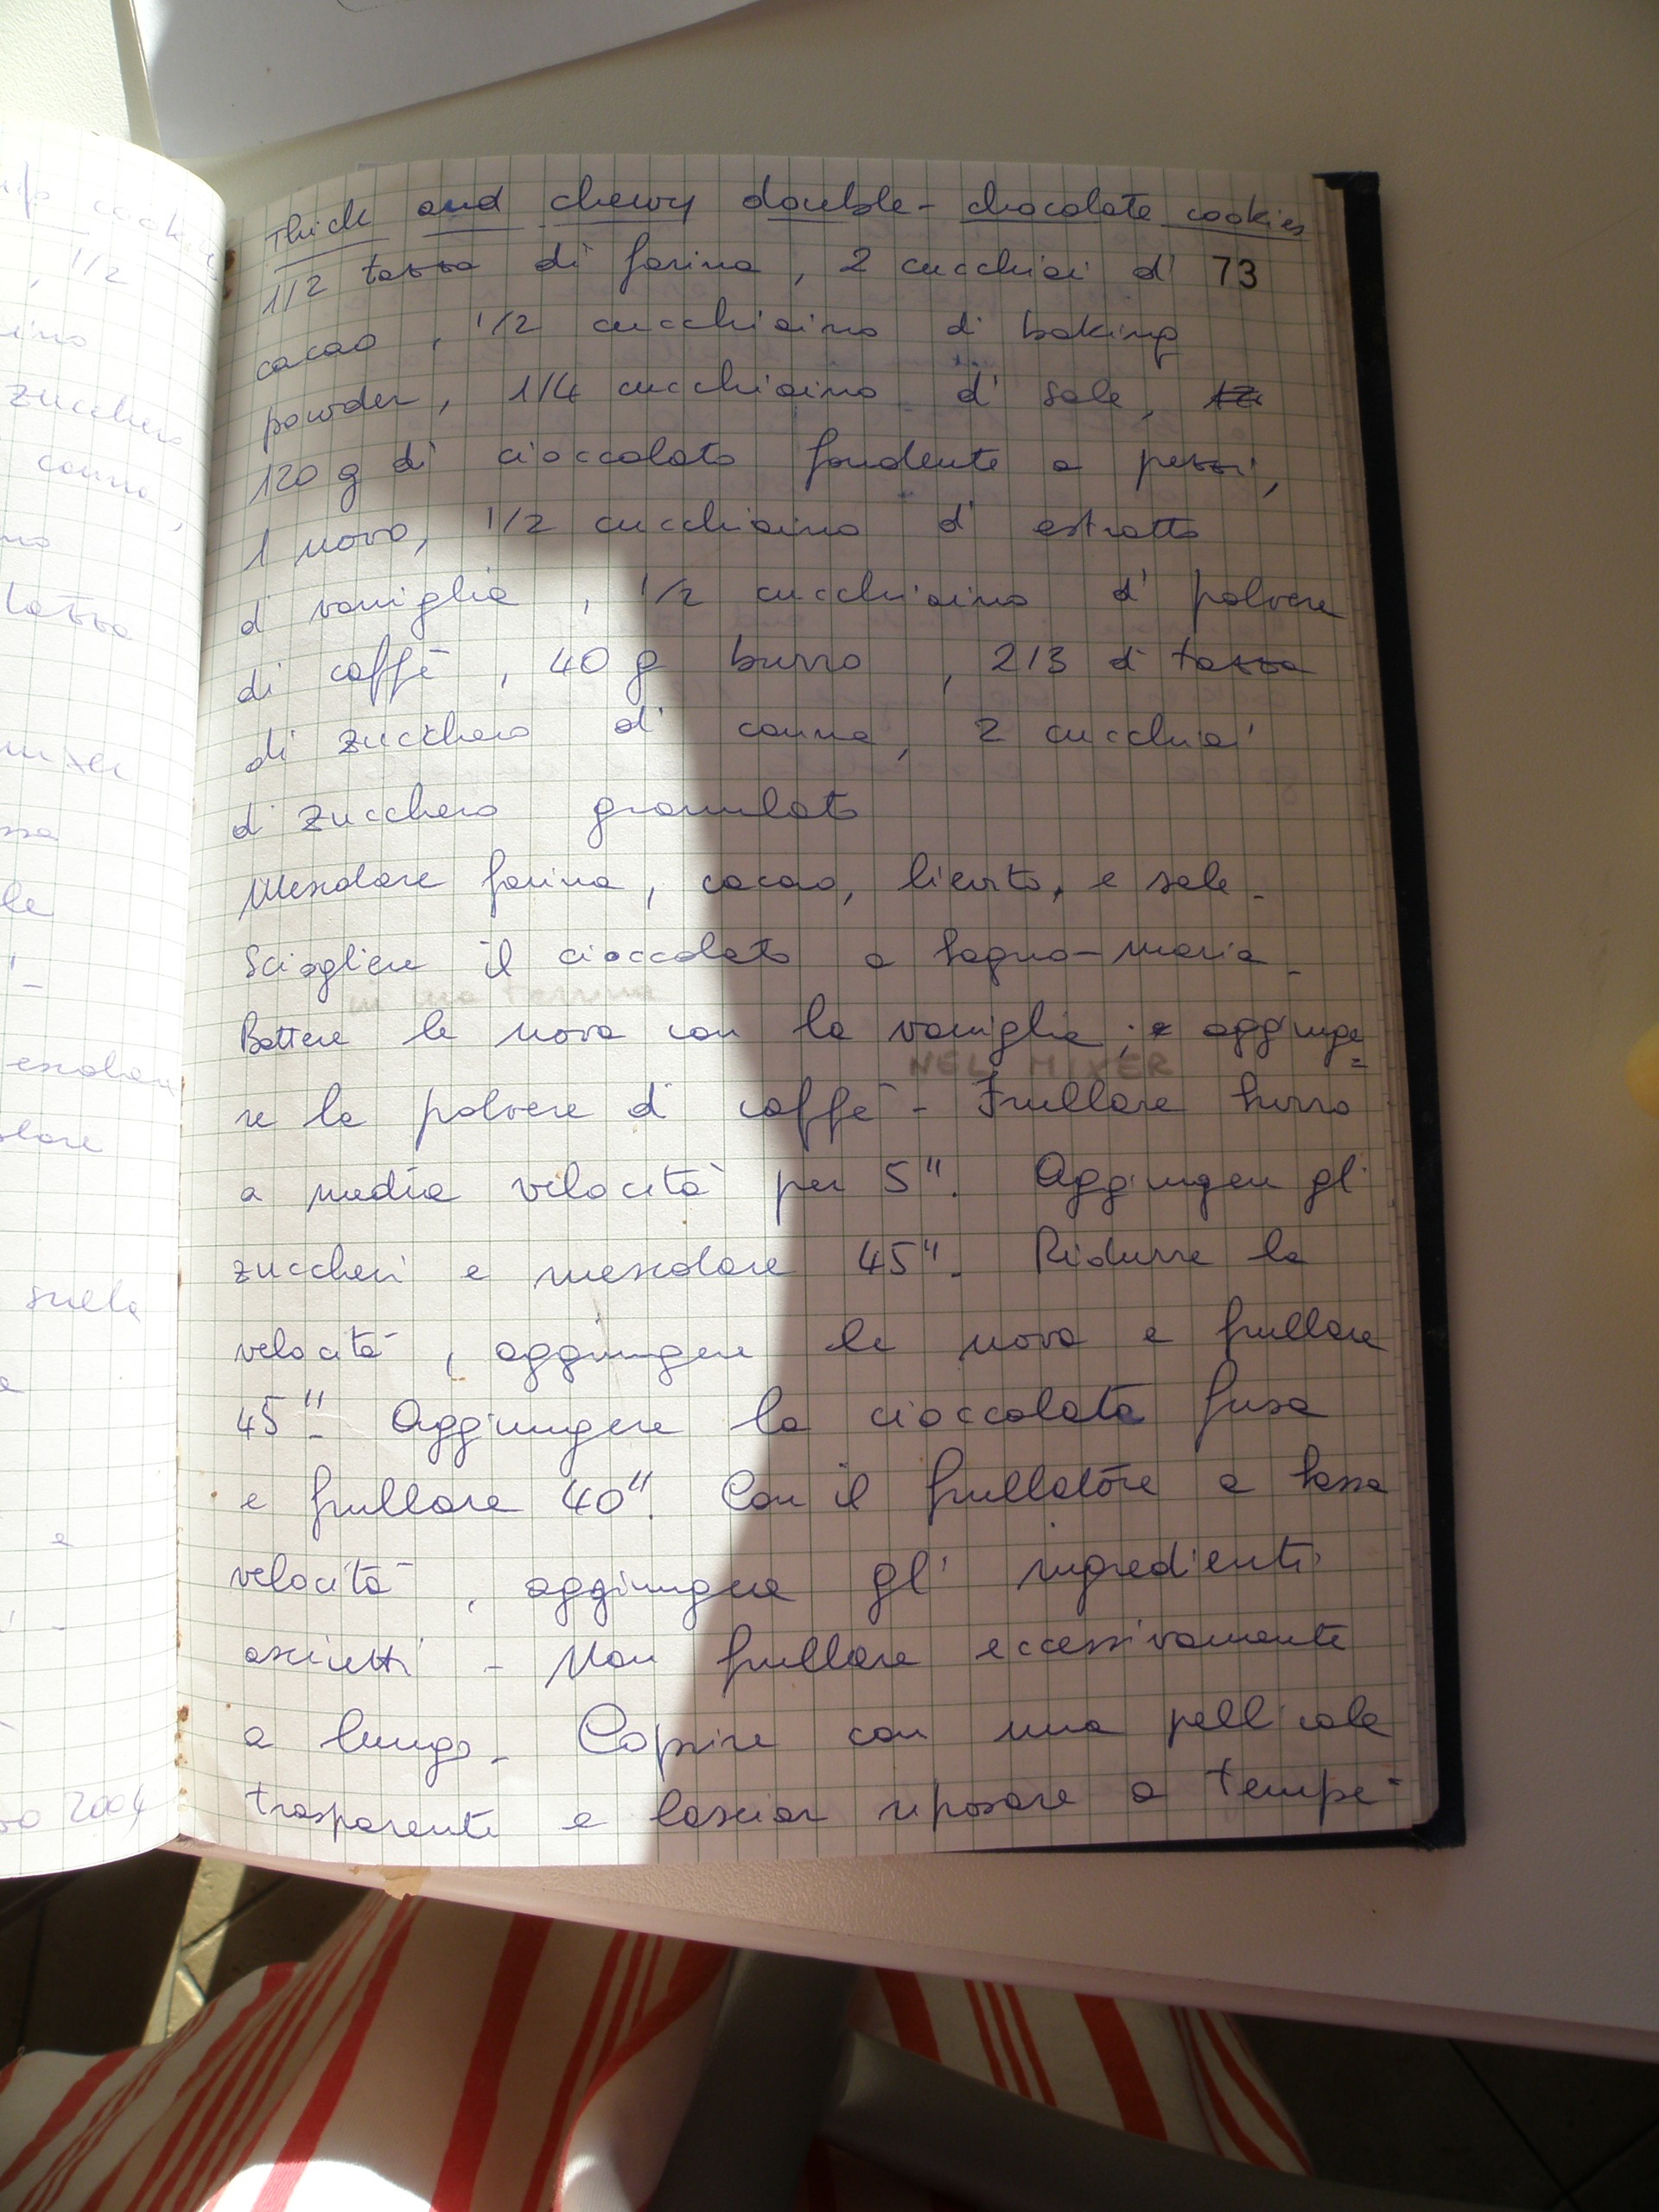 Thick and chewy double-chocolate cookies
1/2 tazza di farina, 2 cucchiai di 73
cacao, 1/2 cucchiaino di baking
powder, 1/4 cucchiaino di sale,
120 g di cioccolato fondente a pezzi,
1 uovo, 1/2 cucchiaino di estratto
di vaniglia, 1/2 cucchiaino di polvere
di caffè, 40 g burro, 2/3 di tazza
di zucchero di canna, 2 cucchiai
di zucchero granulato
Mescolare farina, cacao, lievito, e sale.
Sciogliere il cioccolato a bagno-maria.
in una terrina
Battere le uova con la vaniglia; e aggiunge=
NEL MIXER
re la polvere di caffè - Frullare burro
a media velocità per 5". Aggiungere gli
zuccheri e mescolare 45". Ridurre la
velocità, aggiungere le uova e frullare
45". Aggiungere la cioccolata fusa
e frullare 40". Con il frullatore a bassa
velocità, aggiungere gli ingredienti
asciutti - Non frullare eccessivamente
a lungo. Coprire con una pellicola
trasparente e lasciar riposare a tempe-
cookies
, 1/2
zucchero
canna,
tazza
sulla
2004